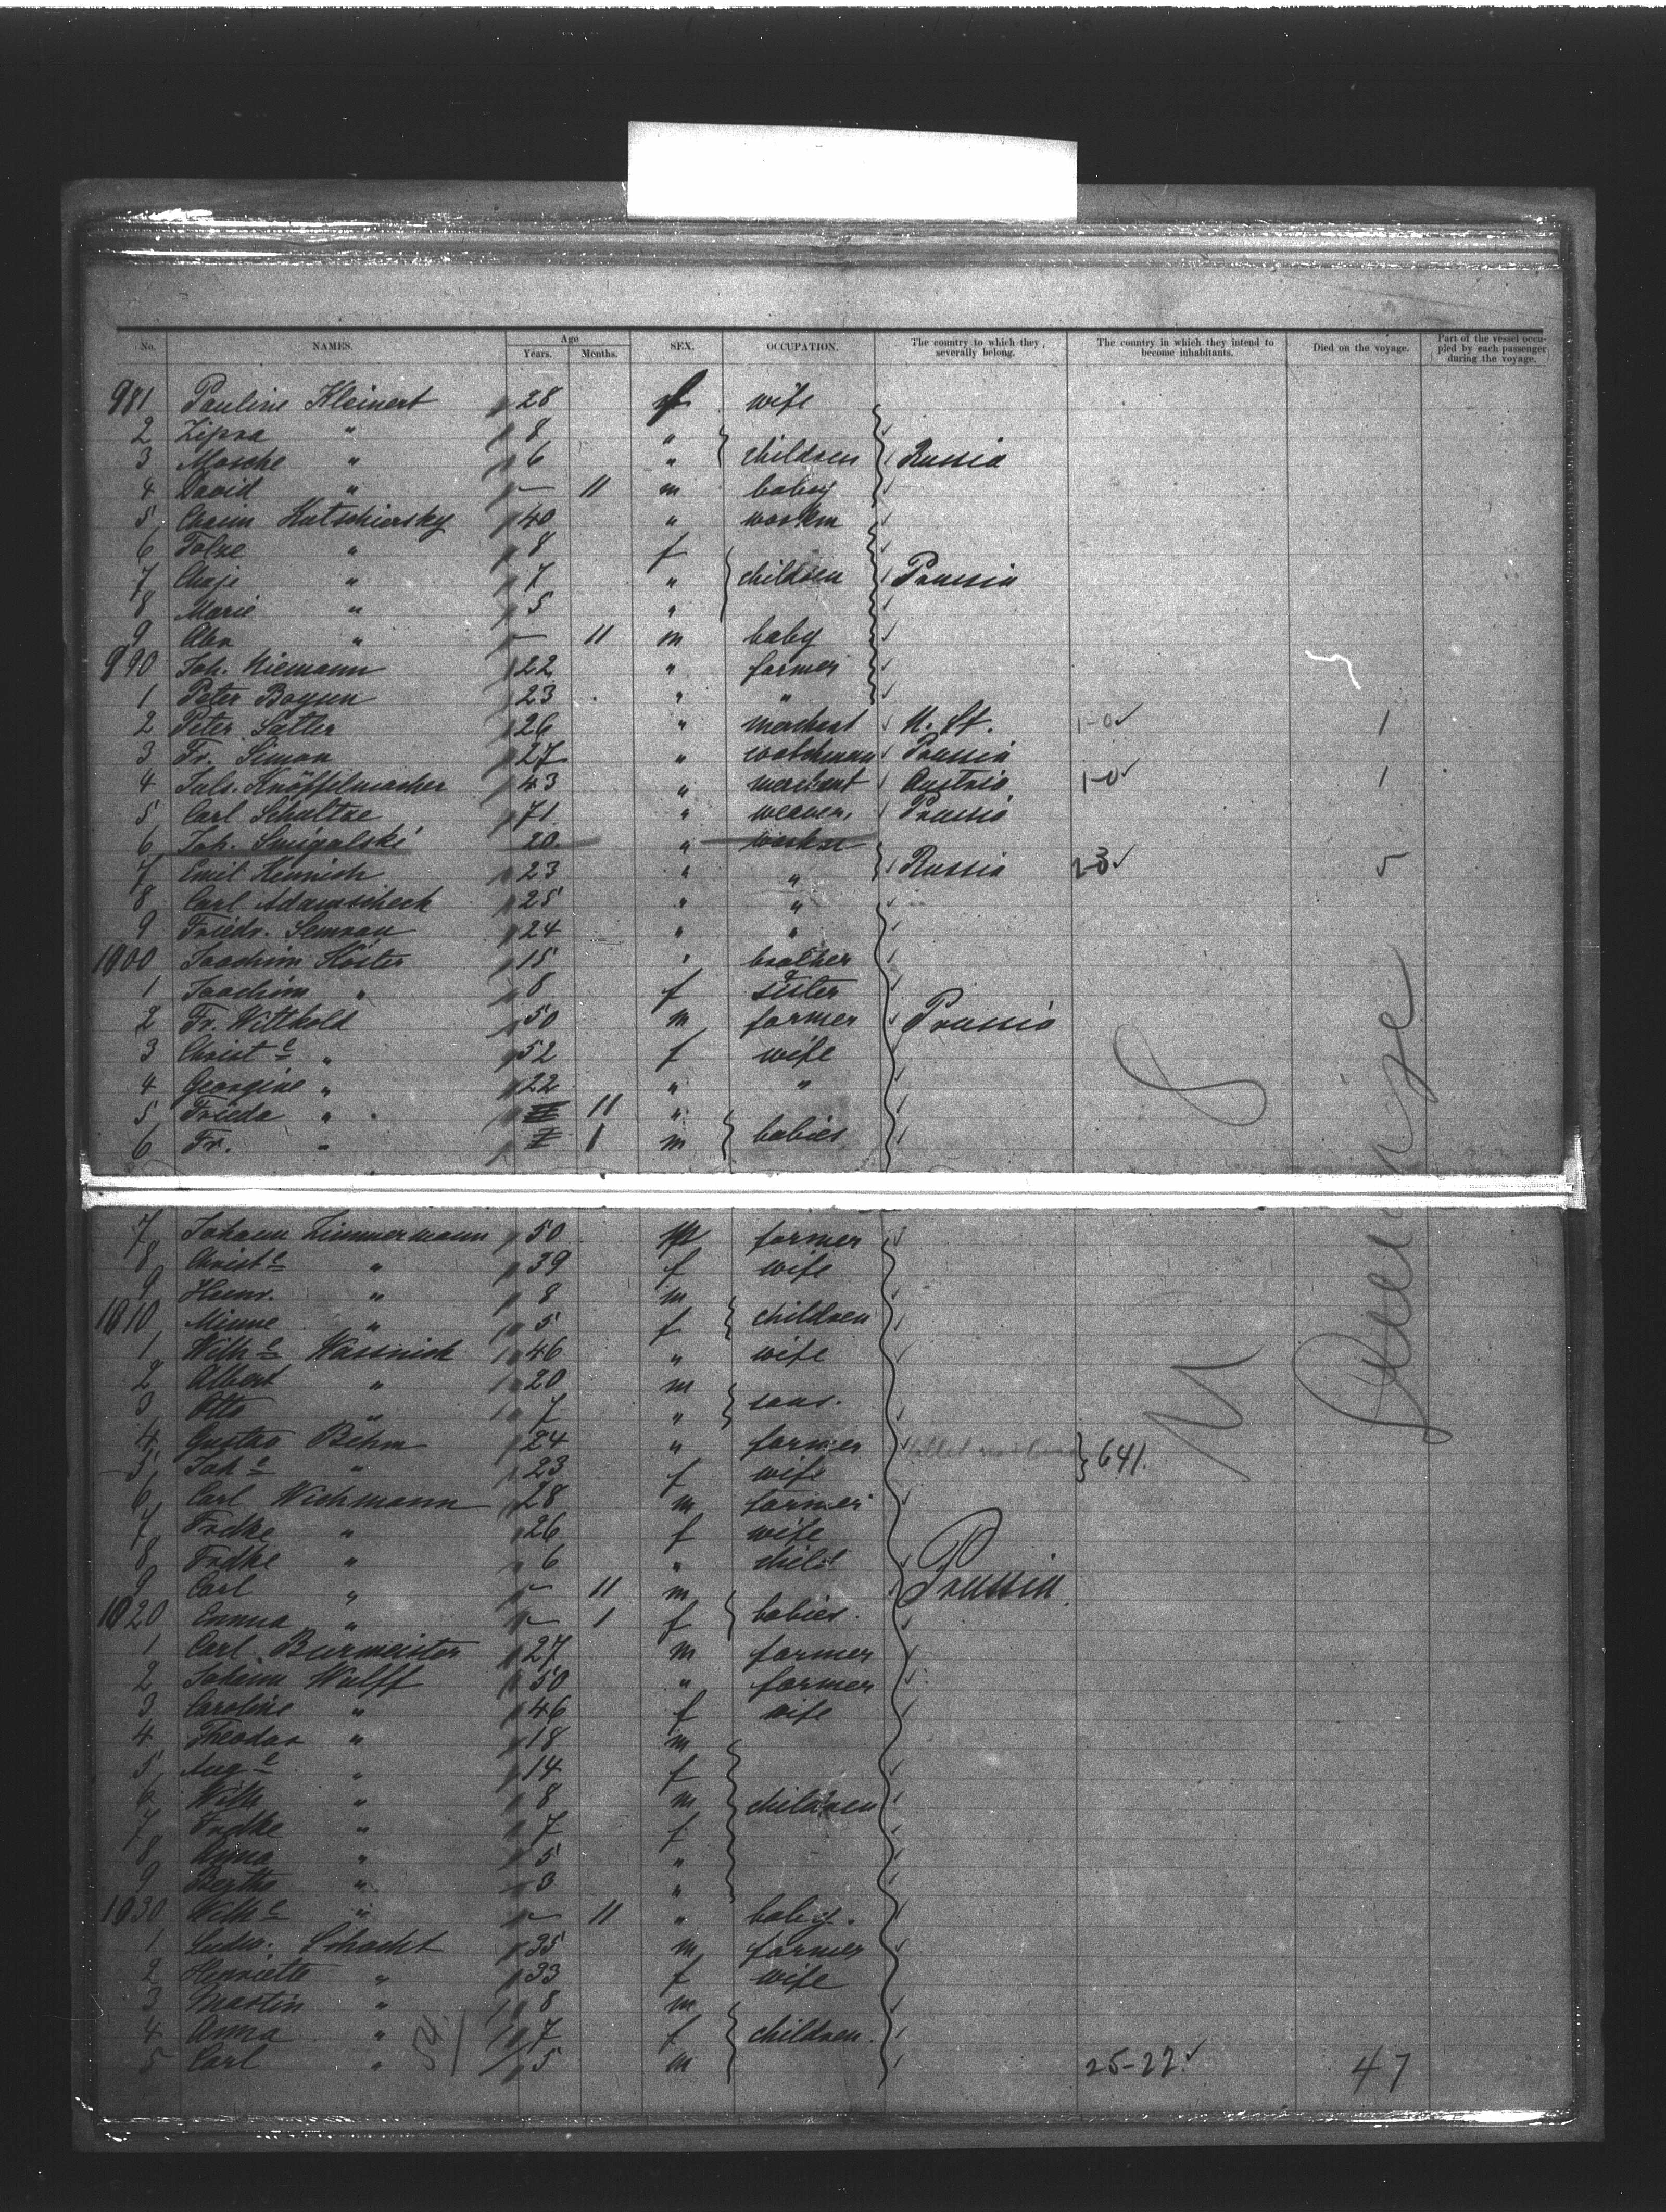 No. NAMES. Age Years. Months. SEX. OCCUPATION. The country to which they severally belong. The country in which they intend to become inhabitants. Died on the voyage. Part of the vessel occupied by each passenger during the voyage.
981 Pauline Kleinert 28 f wife
2 Zipra " 8 "
3 Mosche " 6 " children Russia
4 David " — 11 m baby
5 Chaim Kutschiersky 40 " workm
6 Tolze " 8 f
7 Chaje " 7 " children Prussia
8 Marie " 5 "
9 Abr " — 11 m baby
990 Joh. Niemann 22 " farmer
1 Peter Boysen 23 " "
2 Peter Sattler 26 " merchant U. St. 1-0 1
3 Fr. Simon 27 " watchman Prussia
4 Juls. Knöpfelmacher 43 " merchant Austria 1-0 1
5 Carl Schultze 71 " weaver Prussia
6 Joh. Smigalski 20 "
7 Emil Heinrich 23 " " Russia 2-3 5
8 Carl Adamscheck 25 " "
9 Friedr. Semrau 24 " "
1000 Joachim Köster 15 " brother
1 Joachim " 8 f sister
2 Fr. Wittkold 50 m farmer Prussia
3 Christe " 52 f wife
4 Georgine " 22 " "
5 Frieda " 11 "
6 Fr. " 1 m babies
7 Johann Zimmermann 50 m farmer
8 Christe " 39 f wife
9 Heinr. " 8 m
1010 Minne " 5 f children
1 Wilhe Wassnick 46 " wife
2 Albert " 20 m
3 Otto " 7 " sons.
4 Gustav Böhm 24 " farmer 641.
5 Johe " 23 f wife
6 Carl Wichmann 28 m farmer
7 Frdke " 26 f wife
8 Frdke " 6 " child
9 Carl " — 11 m Prussia
1020 Emma " — 1 f babies.
1 Carl Burmeister 27 m farmer
2 Johann Wulff 50 " farmer
3 Caroline " 46 f wife
4 Theodor " 18 m
5 Auge " 14 f
6 Wilh " 8 m children
7 Frdke " 7 f
8 Anna " 5 "
9 Bertha " 3 "
1030 Wilhe " — 11 " baby.
1 Ludw. Schacht 35 m farmer
2 Henriette " 33 f wife
3 Martin " 8 m
4 Anna " 7 f children.
5 Carl " 5 m 25-22 47